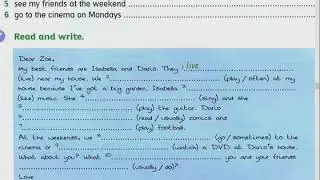 5 see my friends at the weekend ....................
6 go to the cinema on Mondays ....................
Read and write.
Dear Zoe,
My best friends are Isabella and Dario. They 1 live
(live) near my house. We 2 .................... (play / often) at my
house because I've got a big garden. Isabella 3 ....................
(like) music. She 4 .................... (sing) and she
5 .................... (play) the guitar. Dario
6 .................... (read / usually) comics and
7 .................... (play) football.
At the weekends, we 8 .................... (go / sometimes) to the
cinema or 9 .................... (watch) a DVD at Dario's house.
What about you? What 10 .................... you and your friends
.................... (usually / do)?
Love